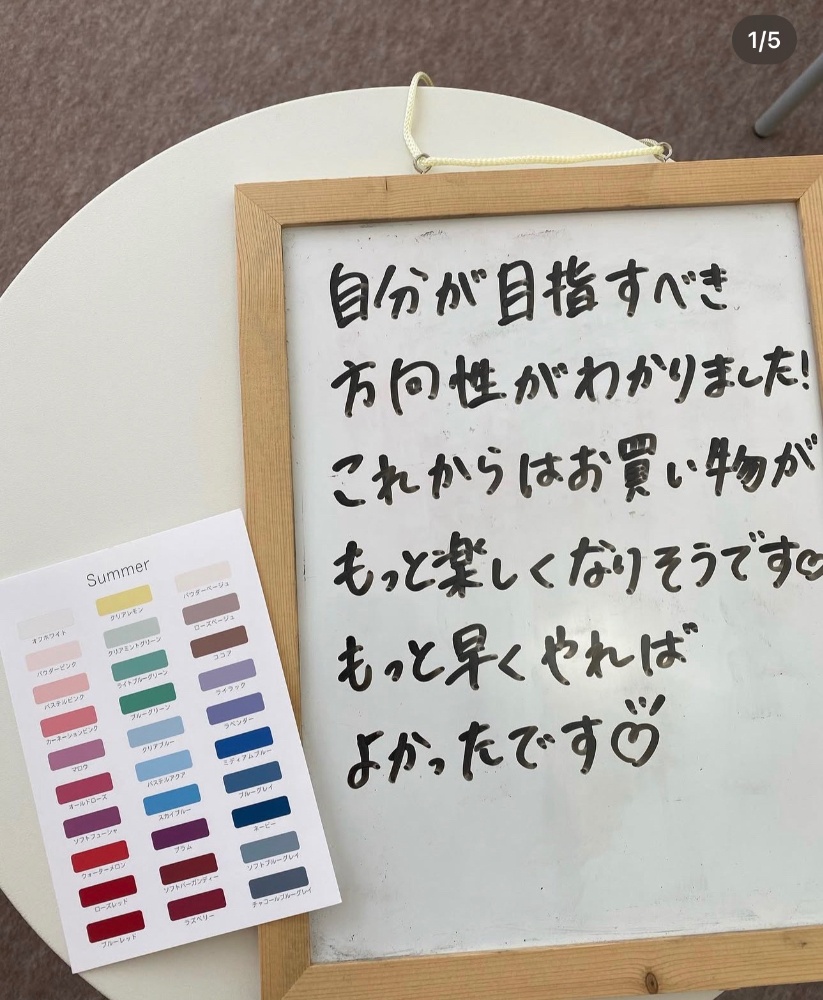 1/5
自分が目指すべき
方向性がわかりました!
これからはお買い物が
もっと楽しくなりそうです♡
もっと早くやれば
よかったです♡
Summer
オフホワイト
パウダーピンク
パステルピンク
カーネーションピンク
マロウ
オールドローズ
ソフトフューシャ
ウォーターメロン
ローズレッド
ブルーレッド
クリアレモン
クリアミントグリーン
ライトブルーグリーン
ブルーグリーン
クリアブルー
パステルアクア
スカイブルー
プラム
ソフトバーガンディー
ラズベリー
パウダーベージュ
ローズベージュ
ココア
ライラック
ラベンダー
ミディアムブルー
ブルーグレイ
ネービー
ソフトブルーグレイ
チャコールブルーグレイ